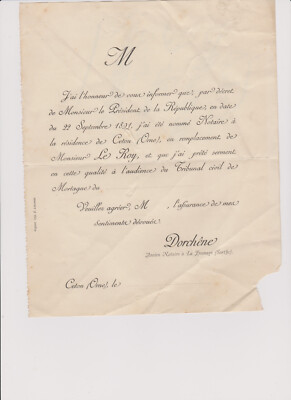 M
J'ai l'honneur de vous informer que, par décret
de Monsieur le Président de la République, en date
du 22 Septembre 1891, j'ai été nommé Notaire à
la résidence de Ceton (Orne), en remplacement de
Monsieur Le Roy, et que j'ai prêté serment
en cette qualité à l'audience du Tribunal civil de
Mortagne du
Veuillez agréer, M , l'assurance de mes
sentiments dévoués.
Dorchêne
Ancien Notaire à La (Sarthe).
Ceton (Orne), le